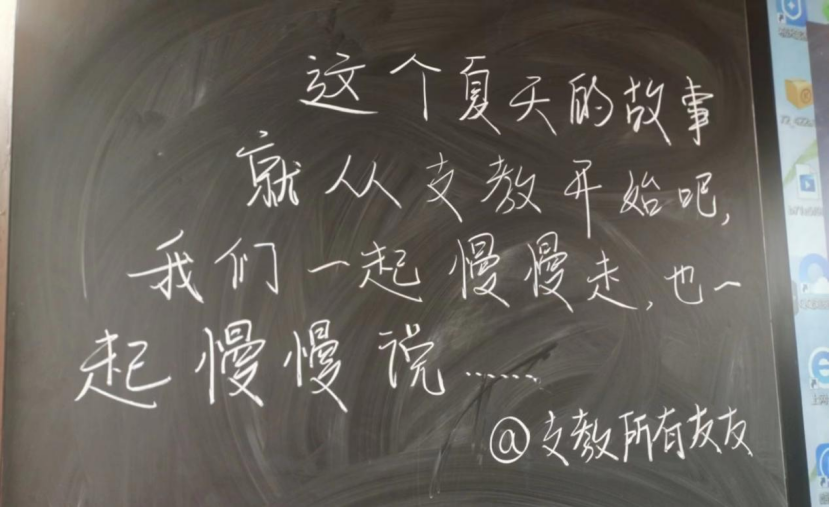 这个夏天的故事
就从支教开始吧,
我们一起慢慢走,也一
起慢慢说……
@支教所有友友